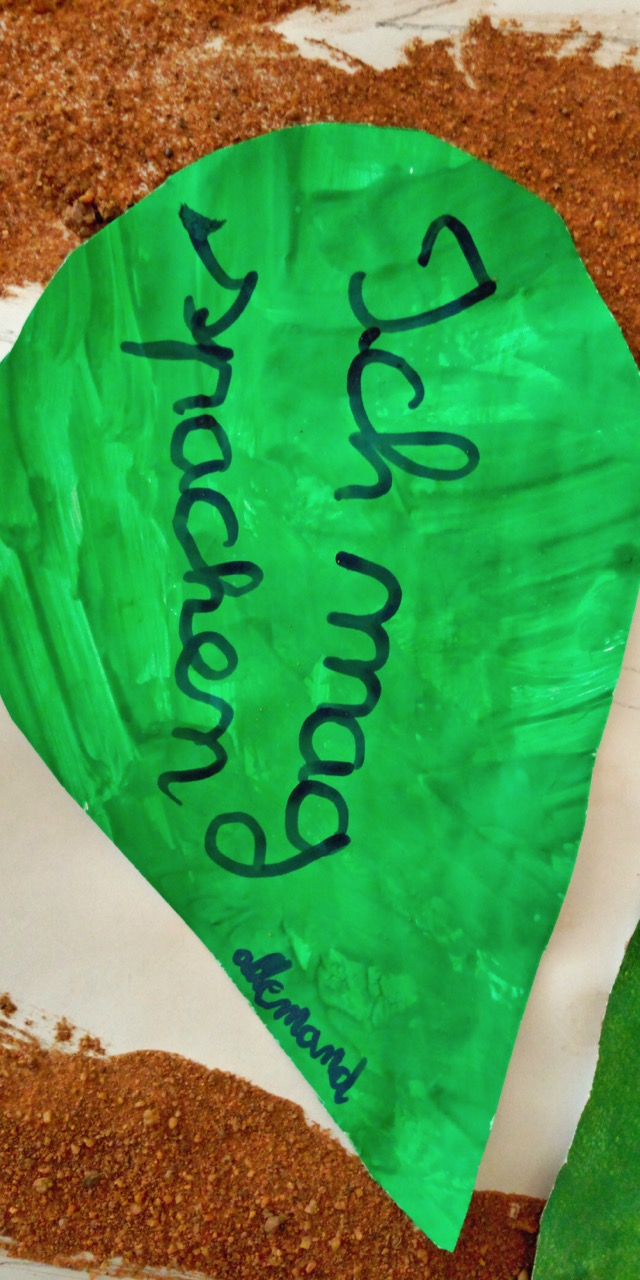 Ich mag
Sprachen
allemand